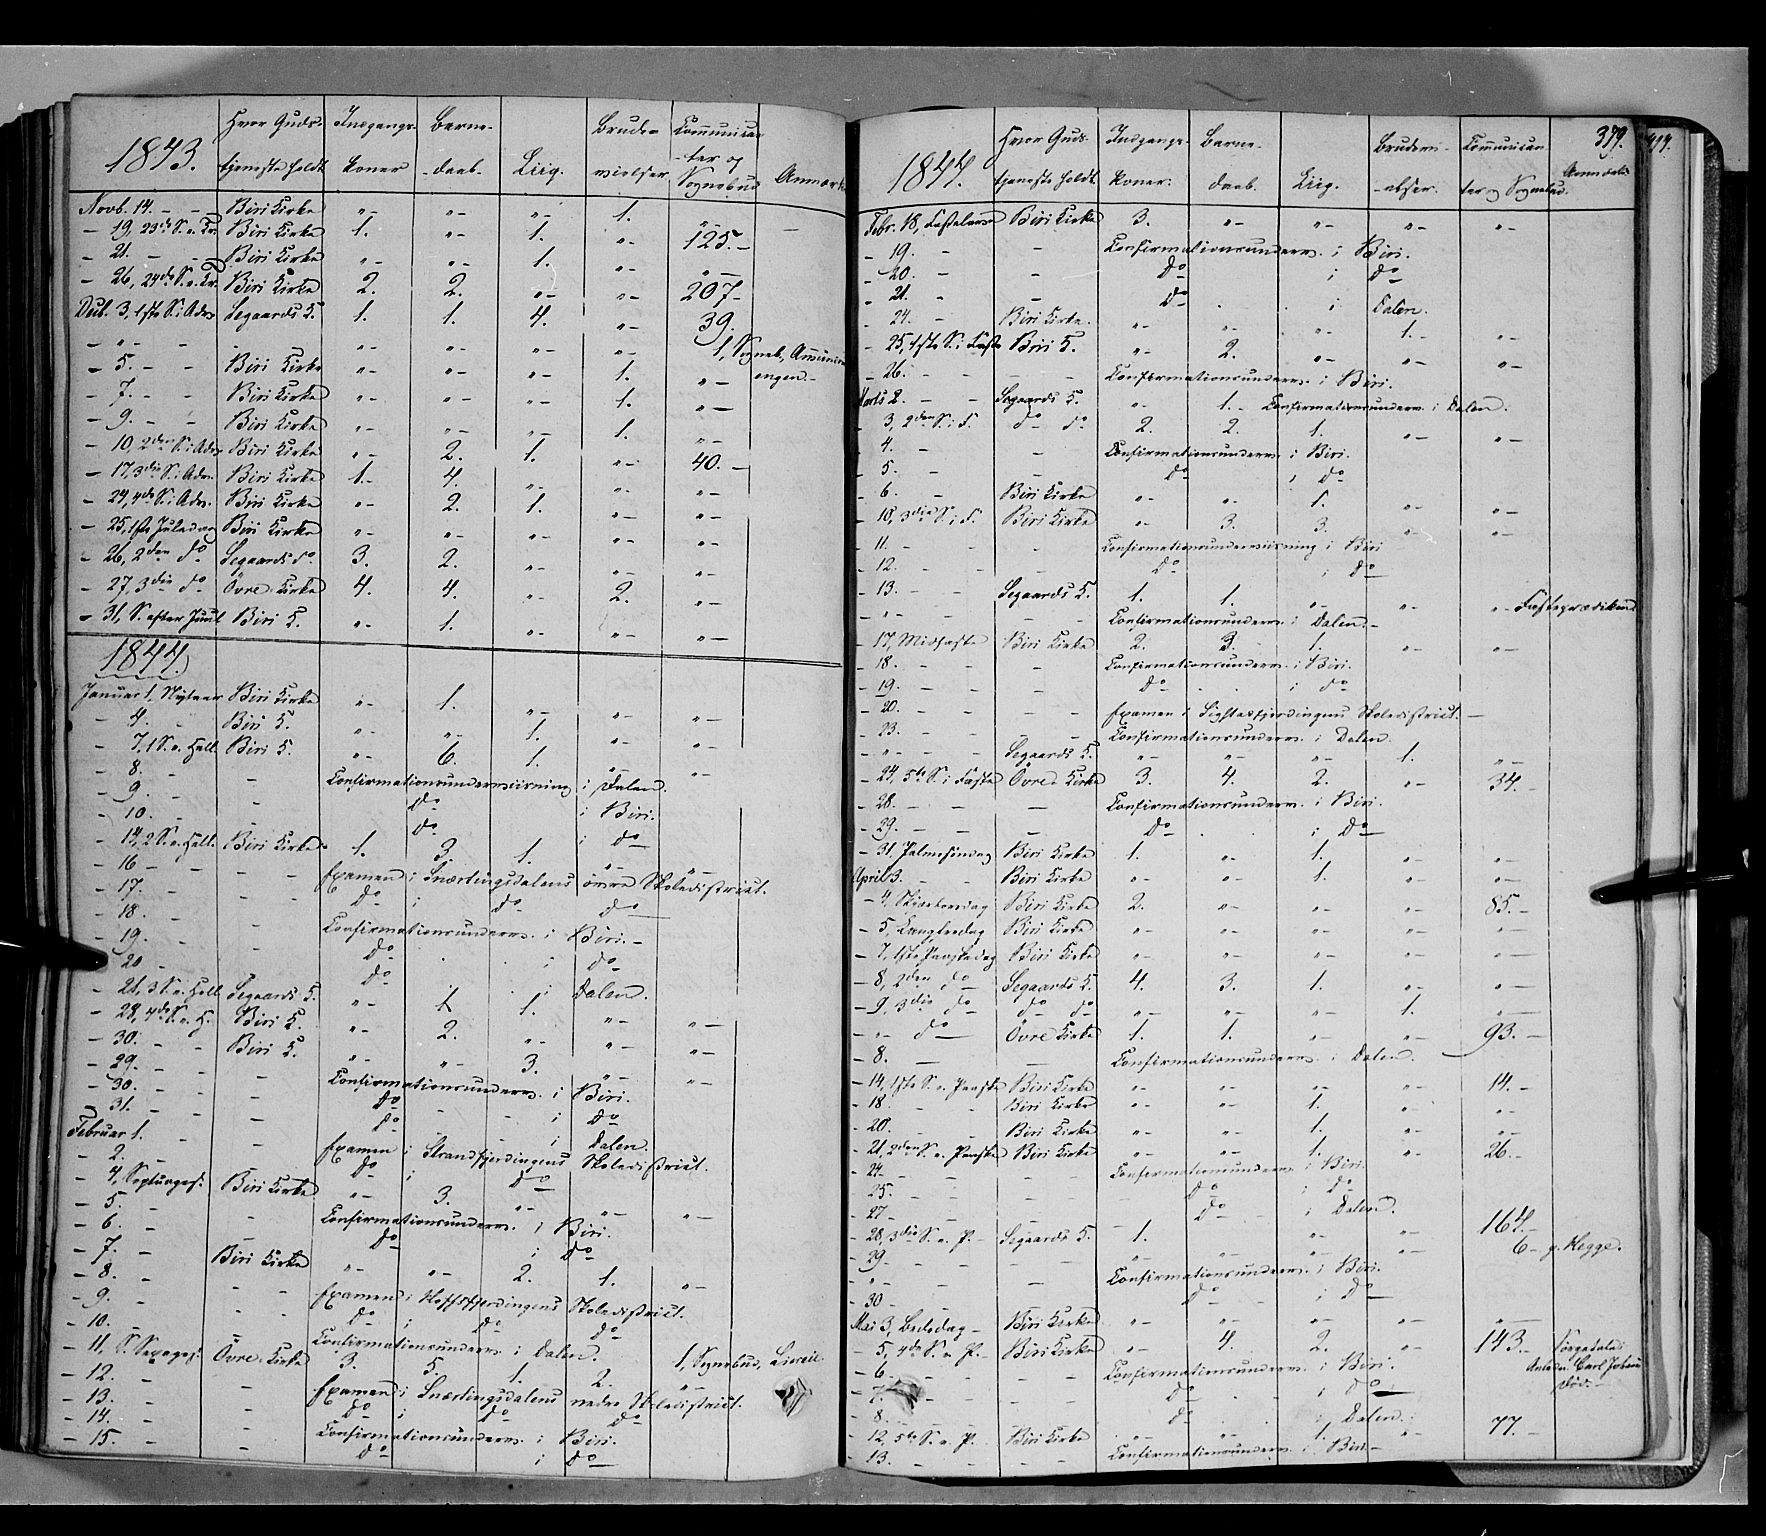 1843. Hvor Guds- Indgangs- Barne- Brude- Communican-
tjeneste holdt koner -daab. Liig. vielser -ter og Sognebud Anmærk
Novb. 14. - - Biri Kirke "- "- "- 1. "-
- 19, 23de S. e. Tr. Biri Kirke 1. "- 1. "- 125.-
- 21. - - Biri Kirke "- "- 1. "- "-
- 26, 24de S. e. Tr. Biri Kirke 2. 2. "- "- 207-
Decb. 3, 1ste S. i Adv. Segaards K. 1. 1. 4. "- 39.
- "- - "- "- "- "- 1, Sogneb.,
- 5. - - Biri Kirke "- "- "- 1. "- engen.-
- 7. - - Biri Kirke "- "- "- 1. "-
- 9. - - Biri Kirke "- "- "- 1. "-
- 10, 2den S. i Adv. Biri Kirke "- 2. 1. "- 40.-
- 17, 3die S. i Adv. Biri Kirke 1.- 4. "- "- "-
- 24, 4de S. i Adv. Biri Kirke "- 2. 1. "- "-
- 25, 1ste Juledag Biri Kirke "- "- "- "- "-
- 26, 2den do Segaards do 3. 2. "- "- "-
- 27, 3die do Övre Kirke 4. 4. "- 2. "-
- 31, S. efter Juul Biri K. "- 1. "- "- "-
1844.
Januar 1. Nytaar Biri Kirke "- 1. "- "- "-
- 4. - Biri K. "- "- 1. "- "-
- 7, 1 S. e. Hell. Biri K. "- 6. 1. "- "-
- 8. - - Confirmationsunderviisning i Dalen.
- 9. - - do i Biri.
- 10. - - do i do
- 14, 2 S. e. Hell. Biri Kirke 1. 3. 1. "- "-
- 16 - - - Examen i Snærtingsdalens övre Skoledistrict.
- 17. - - do i do do
- 18. - - Confirmationsunderv. i Biri.-
- 19. - - do . i do
- 20 - - do . i Dalen.
- 21, 3 S. e. Hell Segaards K. "- 1. 1. "- "-
- 28, 4de S. e. H. Biri K. "- 2. "- "- "-
- 30. - - Biri K. "- "- 3. "- "-
- 29. - - Confirmationsunderv. i Biri.
- 30. - - do - i do
- 31. - - do - i Dalen.
Februar 1. - - Examen i Strandfjerdingens Skoledistrict.
- 2. - - do i do
- 4, Septuages: Biri Kirke "- 3. "- "- "-
- 5. - - Confirmationsunderv. i Biri.
- 6. - - do i do
- 7. - Biri Kirke "- "- 2. 1. "-
- 8. - - Examen i Hoffsfjerdingens Skoledistrict.
- 9. - - do i do do
- 10. - - Confirmationsunderv. i Dalen.
- 11, S. Sexages: Övre Kirke 3. 5. 1. 2. 1, Sognebud,
- 12. - - Examen i Snærtingsdalens nedre Skoledistrict.
- 13. - - do i do do
- 14. - - Confirmationsunderv. i Biri.
- 15. - - do i do
379.
1844. Hvor Guds- Indgangs- Barne- Brudevi- Communican-
tjeneste holdt koner. daab. Liig. -elser. ter og Sognebud.
Febr. 18, Fastelavn Biri Kirke 3. "- "- "- "-
- 19. - - Confirmationsunderv. i Biri.
- 20. - - do i do
- 21. - - do . i Dalen.
- 24. - Biri Kirke. "- "- "- 1. "-
- 25, 1ste S. i Faste Biri K. "- 2. "- "- "-
- 26. - - Confirmationsunderv. i Biri.
Marts 2. - - Segaards K. "- 1.- Confirmationsunderv. i Dalen.
- 3, 2den S. i F. do do 2. 2. 1. "- "-
- 4. - - Confirmationsunderv. i Biri.
- 5. - - do i do
- 6. - Biri Kirke "- "- 1. "- "-
- 10, 3die S. i F. Biri Kirke "- 3. 3. "- "-
- 11. - - Confirmationsunderviisning i Biri
- 12. - - do i do
- 13. - - Segaards K. 1. 1. "- "- "- Fasteprædiken
- "- - - Confirmationsunderv. i Dalen.-
- 17, Midfaste Biri Kirke 2. 3. 1. "- "-
- 18. - - Confirmationsunderv. i Biri.
- 19. - - do . i do
- 20. - - Examen i Skoledistrict.-
- 23. - - Confirmationsunderv. i Dalen.
- "- - Segaards K. "- "- "- 1. "-
- 24, 5te S. i Faste Övre Kirke 3. 4. 2. "- 34.-
- 28. - - Confirmationsunderv. i Biri.
- 29. - - do . i do
- 31. Palmesöndag Biri Kirke 1. "- 1. "- "-
April 3. - - Biri Kirke "- "- 1. "- "-
- 4, Skjærtorsdag Biri Kirke 2. "- "- "- 85.-
- 5, Langfredag Biri Kirke "- "- "- "- "-
- 7, 1ste Paaskedag Biri Kirke "- "- "- "- "-
- 8, 2den do Segaards K. 4. 3. 1. "- "-
- 9, 3die do do do "- "- "- 1. "-
- "- do Övre Kirke 1. 1. "- "- 93.-
- 8. - - Confirmationsunderv. i Dalen.
- 14, 1ste S. e. Paaske Biri Kirke "- "- "- "- 14.-
- 18. - - Biri Kirke "- "- 1. "- "-
- 20. - - Biri Kirke "- "- 1. "- "-
- 21, 2den S. e. Paaske Biri Kirke "- "- 1. "- 26.-
- 24. - - Confirmationsunderv. i Biri.
- 25. - - do i do
- 27 - - do i Dalen.
- 28, 3die S. e. P.- Segaards K. 1. "- "- 164.
- 29. - - "- "- "- "- 6- p. Hegge.
- "- - - Confirmationsunderv. i Biri.
- 30 - - do - i do
Mai 3, Bededag - Biri Kirke "- "- "- "- "-
- 5, 4de S. e. P.- Biri Kirke "- 4. 2. "- 143.- Sørgetale i
- 6 - - Confirmationsunderv. i Biri. Anledn. Carl Johans
- 7. - - do . i do Död.-
- 8. - - do . i Dalen.
- 12, 5te S. e. P. Biri Kirke "- "- 1. "- 77.-
- 13. - - Confirmationsunderv. i Biri.-